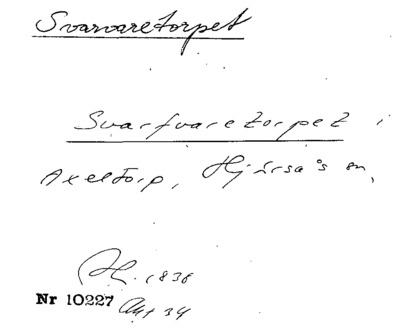 Svarvaretorpet
Svarfvaretorpet i
Axeltorp, Hjärsås sn,
H. 1838
Nr 10227 Akt 34